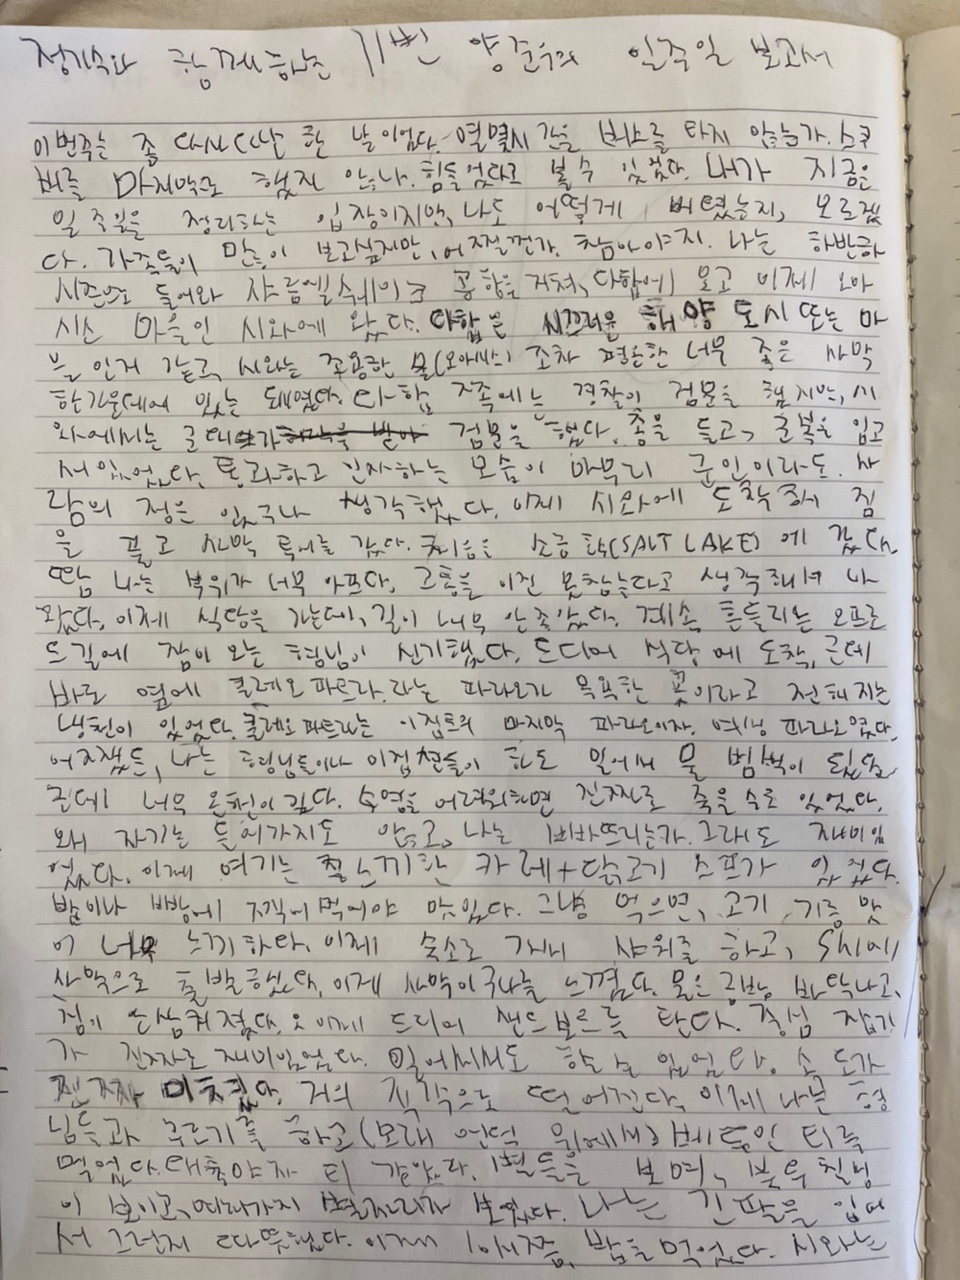 함께하는 11번 양준우의 일주일 보고서
이번주는 좀 다사다난 한 날이었다. 열몇시간을 버스를 타지 않는가. 스쿠
버를 마지막으로 했지 않나. 힘들었다고 볼 수 있었다. 내가 지금은
일주일을 정리하는 입장이지만, 나도 어떻게 버텼는지, 모르겠
다. 가족들이 많이 보고싶지만, 어쩔껀가, 참아야지. 나는 하반하
시즌으로 들어와 샤름엘쉐이크 공항을 거쳐, 다합에 오고 이제 오아
시스 마을인 시와에 왔다. 다합은 시끄러운 해양 도시 또는 마
을 인거 같고, 시와는 조용한 물(오아시스) 조차 평온한 너무 좋은 사막
한가운데에 있는 였다. 다합 쪽에는 경찰이 검문을 했지만, 시
와에서는 군대가 검문을 했다. 총을 들고, 군복을 입고
서있었다. 통과하고 인사하는 모습이 아무리 군인이라도. 사
람의 정은 있구나 생각했다. 이제 시와에 도착해서 짐
을 풀고 사막 투어를 갔다. 처음은 소금 호수(SALT LAKE) 에 갔다.
땀 나는 부위가 너무 아프다. 고통을 이젠 못참는다고 생각해서 나
왔다. 이제 식당을 가는데, 길이 너무 안좋았다. 계속 흔들리는 오프로
드길에 잠이 오는 형님이 신기했다. 드디어 식당에 도착, 근데
바로 옆에 클레오파트라.라는 파라오가 목욕한 곳이라고 전해지는
냉천이 있었다. 클레오파트라는 이집트의 마지막 파라오이자, 여성 파라오였다.
어쨌든, 나는 형님들이나 이집션들이 하도 밀어서 물 범벅이 됐다.
근데 너무 온천이 깊다. 수영을 어려워하면 진짜로 죽을 수도 있었다.
왜 자기는 들어가지도 않고, 나는 빠뜨리는가. 그래도 재미있
었다. 이제 여기는 느끼한 카레+닭고기 스프가 있었다.
밥이나 빵에 찍어먹어야 맛있다. 그냥 먹으면, 고기, 기름 맛
이 너무 느끼하다. 이제 숙소로 가서 샤워를 하고, 5시에
사막으로 출발했다. 이제 사막이구나를 느꼈다. 물은 금방 바닥나고,
이제 드디어 샌드보드를 탄다. 중심 잡기
가 진짜로 재미있었다. 일어서서도 할 수 있었다. 속도가
진짜 미쳤다. 거의 직각으로 떨어진다. 이제 나는 형
님들과 구르기를 하고(모래 언덕 위에서) 베두인 티를
먹었다. 대추야자 티 같았다. 별들을 보며, 북두칠성
이 보이고, 여러가지 별자리가 보였다. 나는 긴팔을 입어
서 그런지 따뜻했다. 이제 쯤, 밥을 먹었다. 시와는